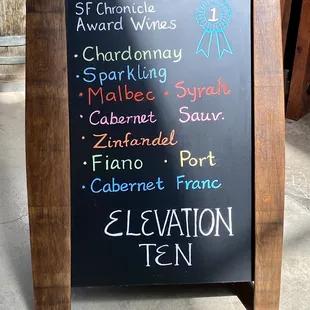 SF Chronicle
Award Wines
1
· Chardonnay
· Sparkling
· Malbec · Syrah
· Cabernet Sauv.
· Zinfandel
· Fiano · Port
· Cabernet Franc
ELEVATION
TEN